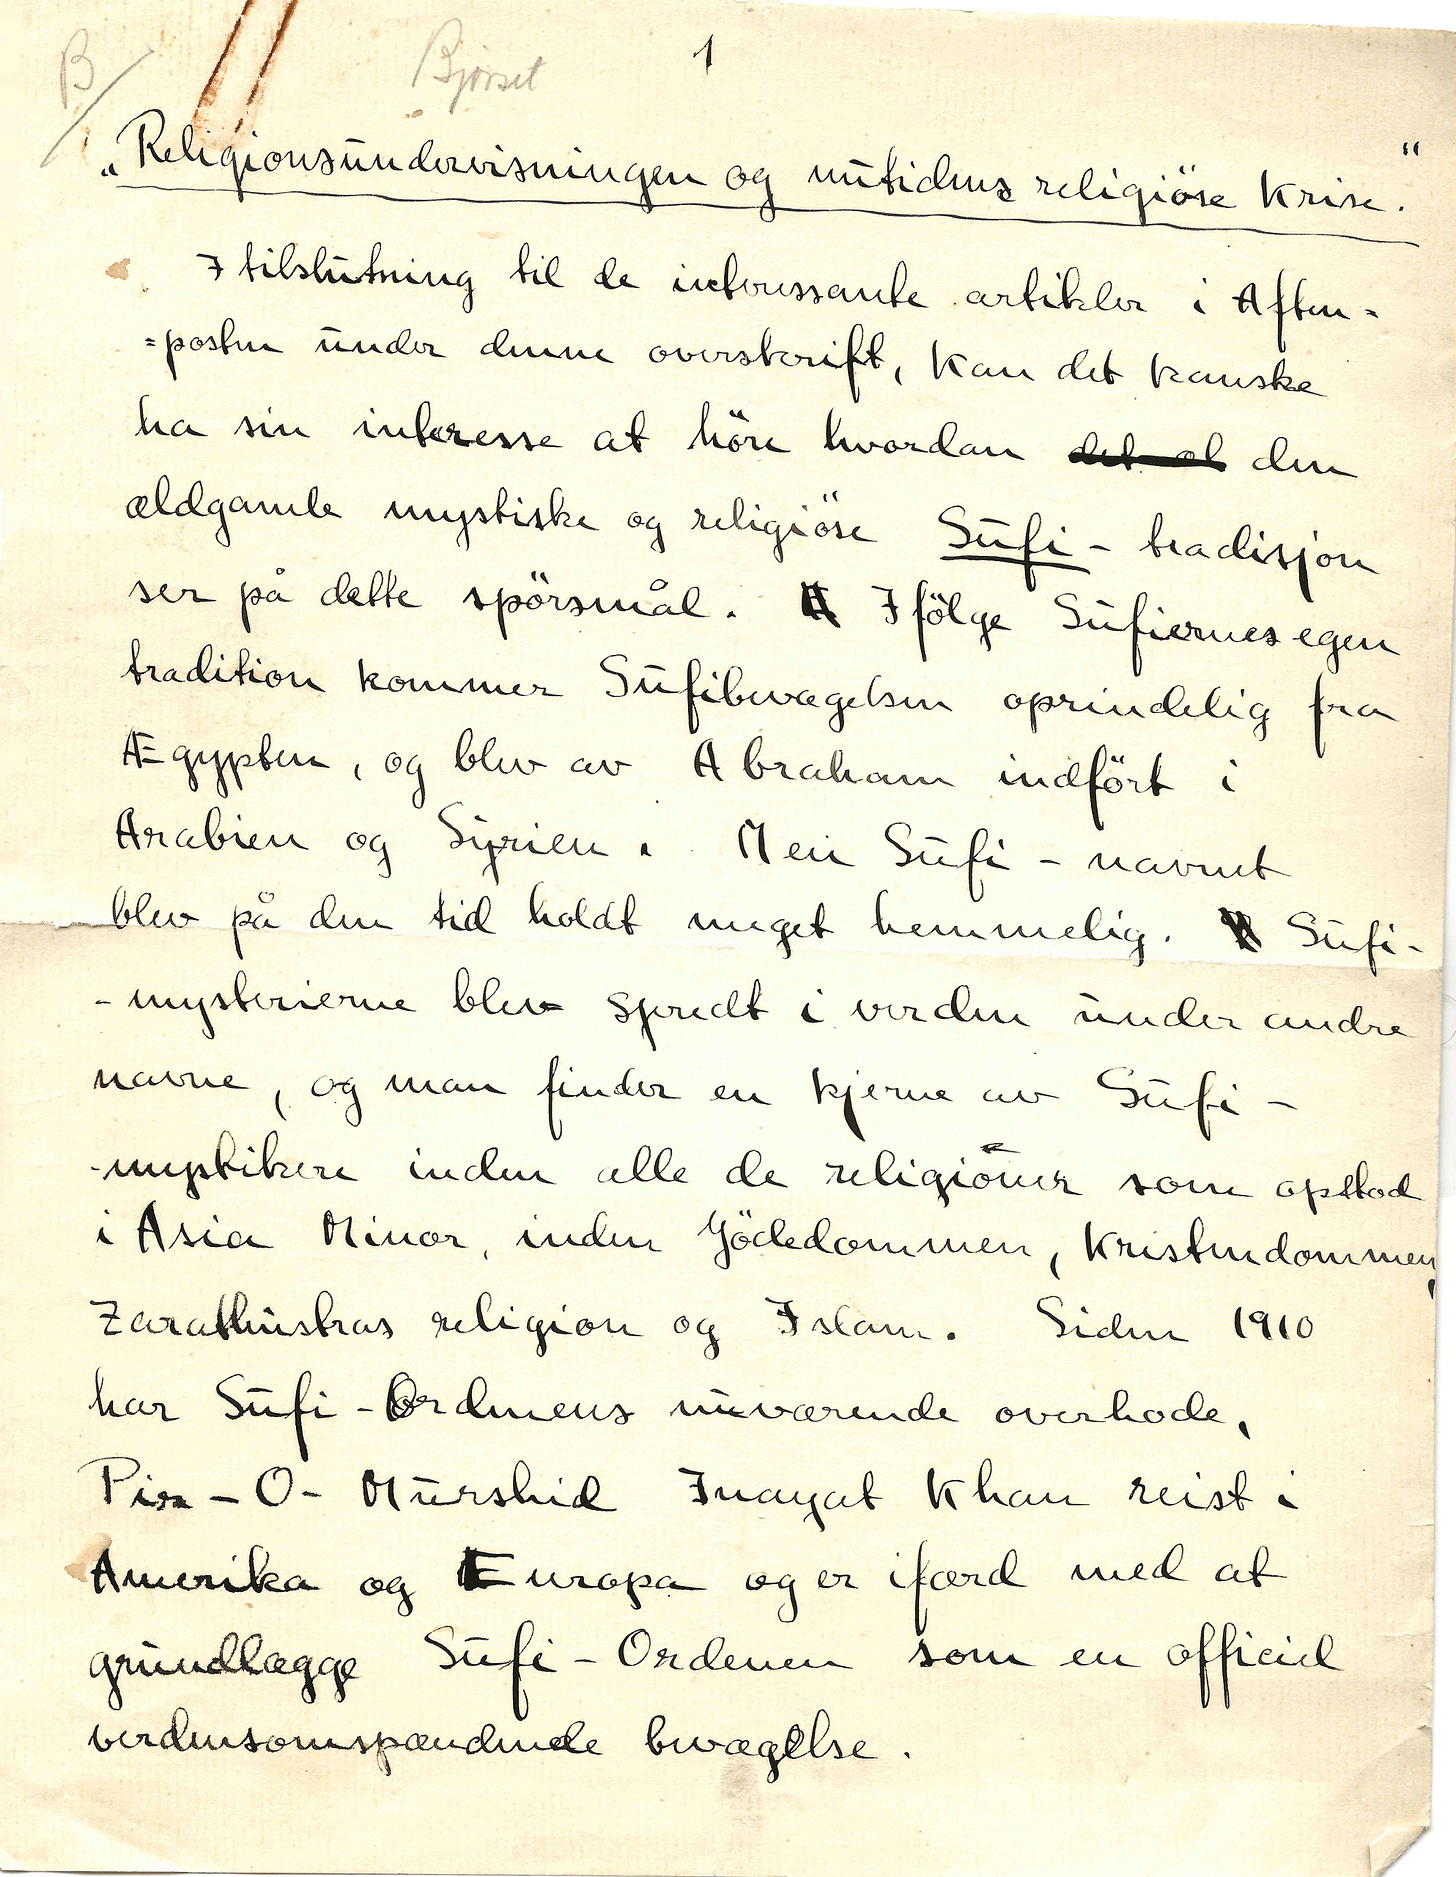 B/
Bjørset
1
„Religionsundervisningen og nutidens religiöse Krise.“
I tilslutning til de interessante artikler i Aften=
=posten under denne overskrift, kan det kanske
ha sin interesse at höre hvordan den
ældgamle mystiske og religiöse Sufi - tradisjon
ser på dette spörsmål. Ifölge Sufiernes egen
tradition kommer Sufibevægelsen oprindelig fra
Ægypten, og blev av Abraham indfört i
Arabien og Syrien. Men Sufi - navnet
blev på den tid holdt meget hemmelig. Sufi-
-mysterierne blev spredt i verden under andre
navne, og man finder en kjerne av Sufi -
-mystikere inden alle de religioner som opstod
i Asia Minor, inden Jödedommen, Kristendommen,
Zarathustras religion og Islam. Siden 1910
har Sufi - Ordenens nuværende overhode,
Pir - O - Murshid Inayat Khan reist i
Amerika og Europa og er ifærd med at
grundlægge Sufi - Ordenen som en officiel
verdensomspændende bevægelse.